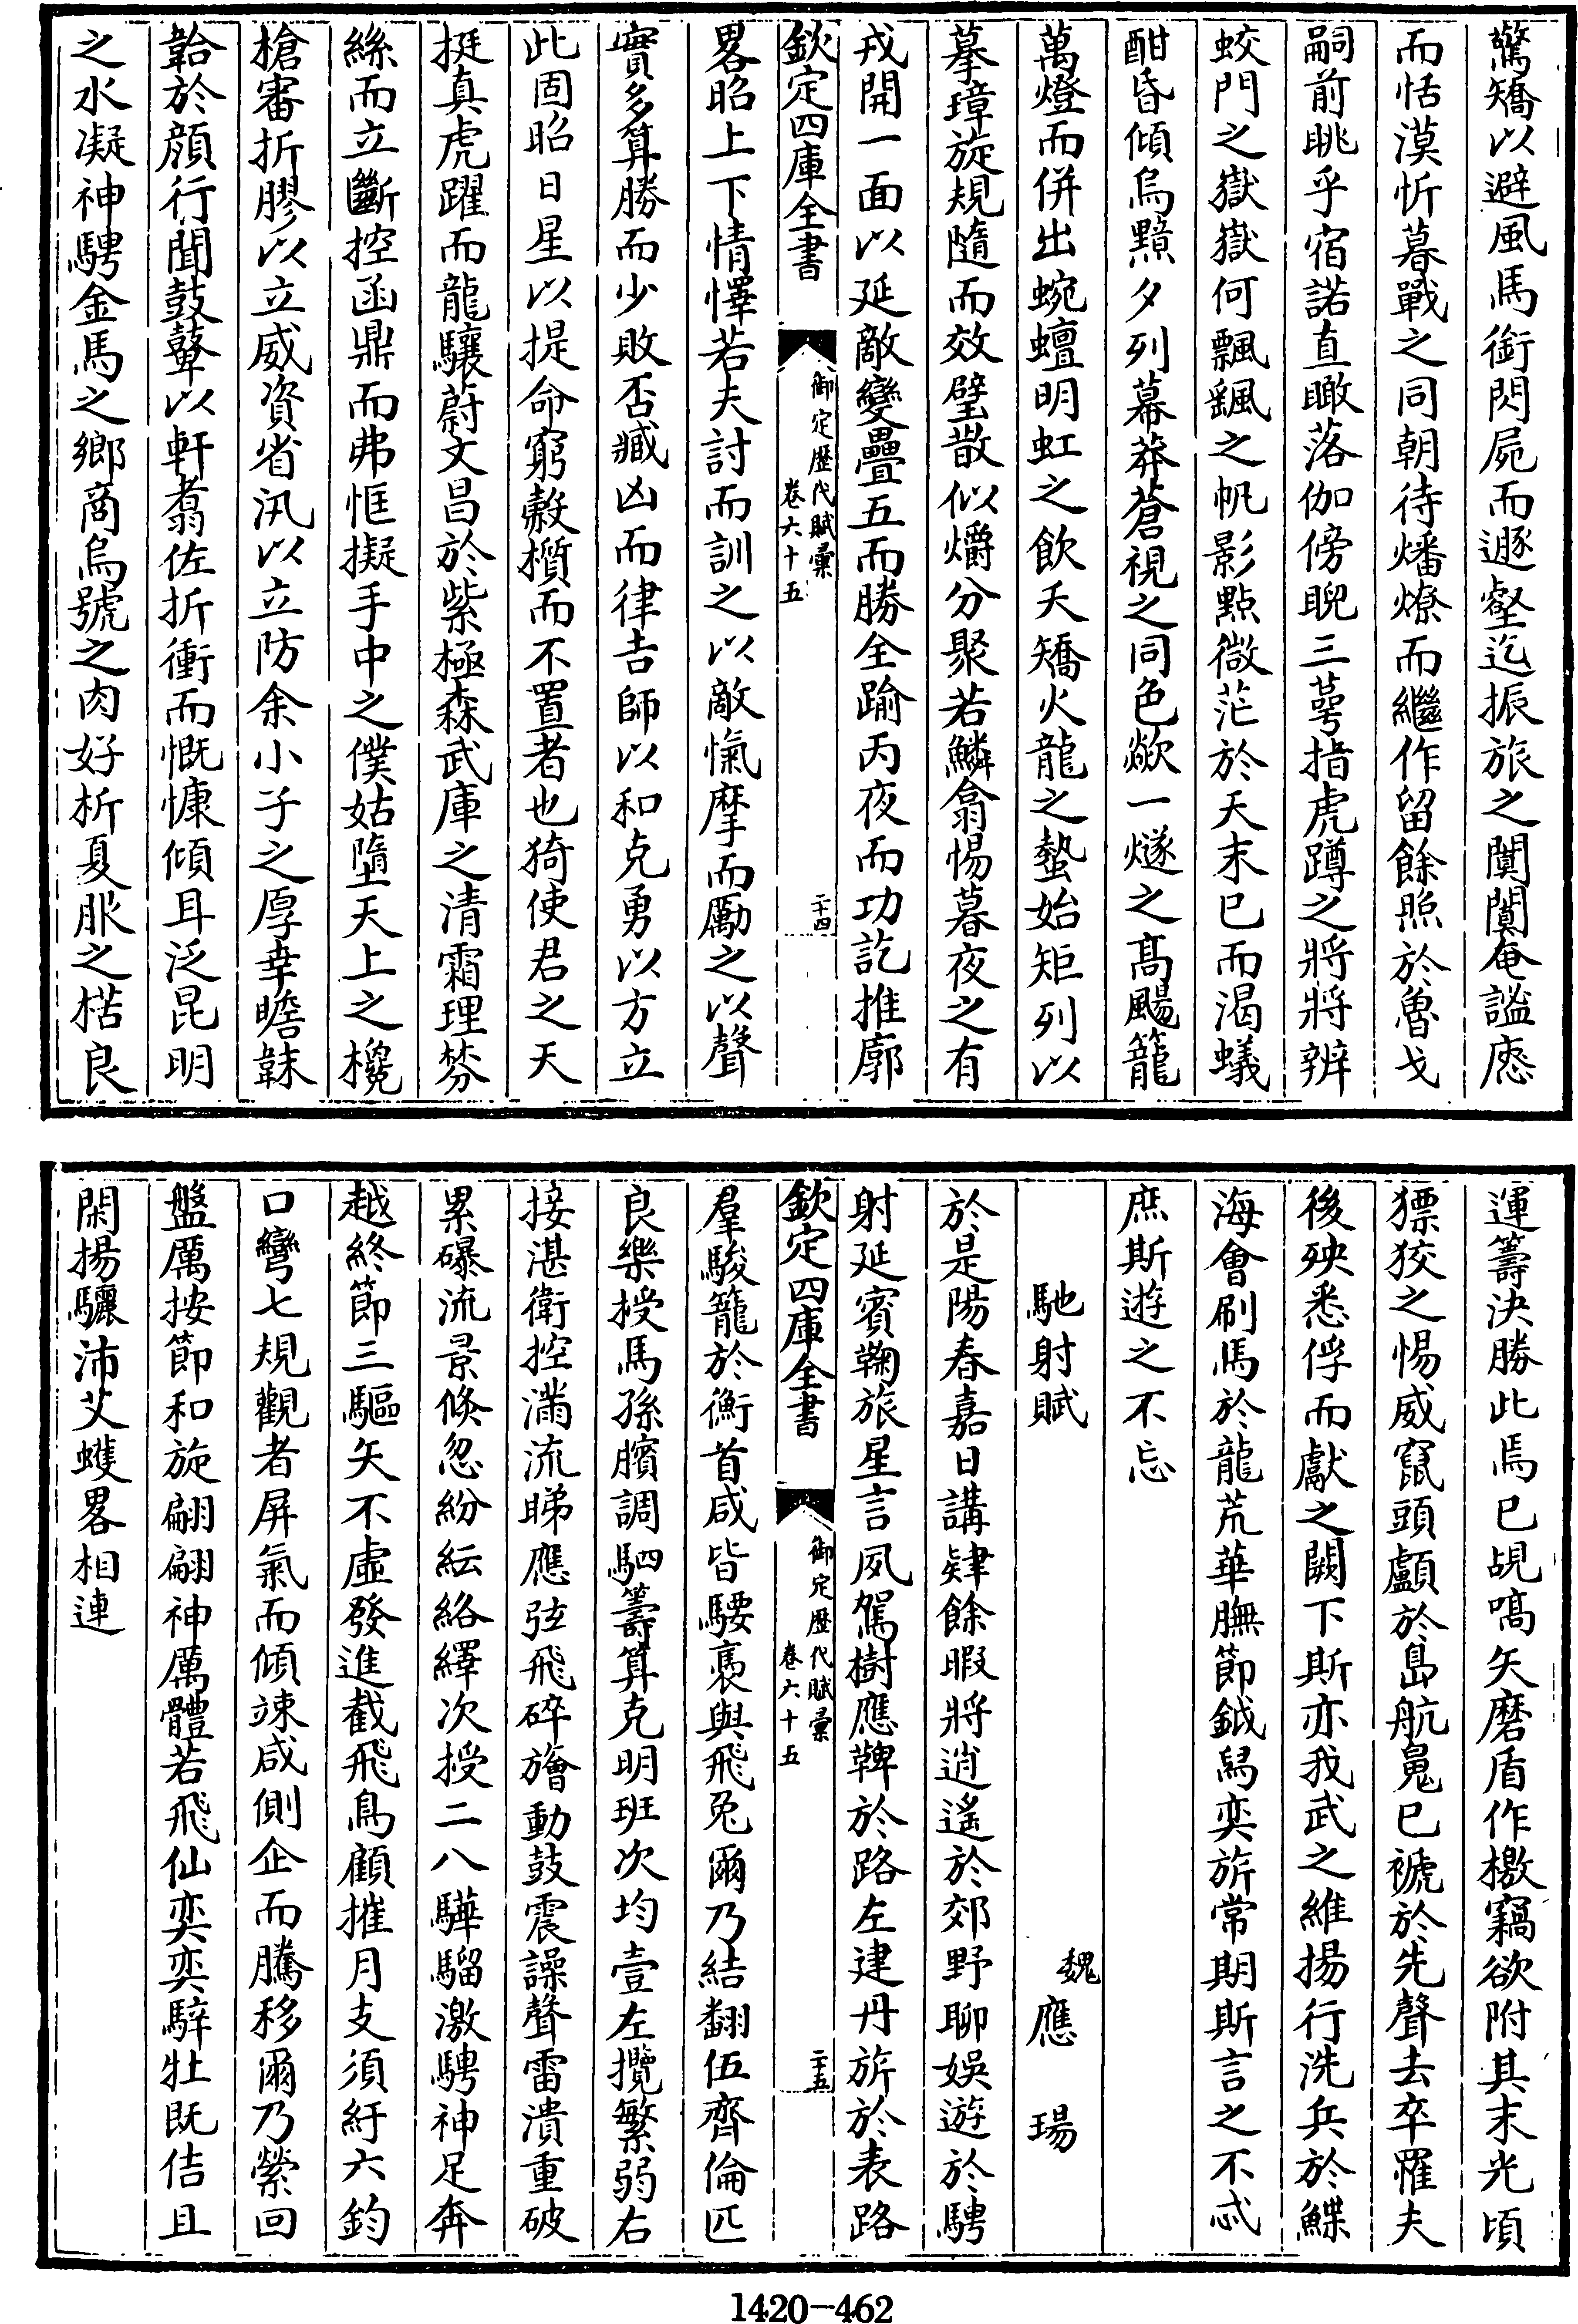 驚矯以避風馬銜閃屍而遯壑迄振旅之闃闃奄謐應
而恬漠忻暮戰之同朝待燔燎而繼作留餘照於魯戈
嗣前眺乎宿諾直瞰落伽傍睨三蕚指虎蹲之將將辨
蛟門之嶽嶽何飄颻之帆影點微茫於天末已而渴蟻
酣昏傾烏黯夕列幕莽蒼視之同色歘一燧之髙颺籠
萬燈而併出蜿蟺明虹之飲夭矯火龍之蟄始矩列以
摹璋旋規隨而效璧散似爝分聚若鱗翕惕暮夜之有
戎開一面以延敵變疊五而勝全踰丙夜而功訖推廓
欽定四庫全書
御定歷代賦彙
卷六十五
二十四
畧昭上下情懌若夫討而訓之以敵愾摩而勵之以聲
實多算勝而少敗否臧凶而律吉師以和克勇以方立
此固昭日星以提命窮榖櫍而不置者也猗使君之天
挺真虎躍而龍驤蔚文昌於紫極森武庫之清霜理棼
絲而立斷控函鼎而弗恇擬手中之僕姑墮天上之欃
槍審折膠以立威資省汛以立防余小子之厚幸瞻韎
韐於顔行聞鼓鼙以軒翥佐折衝而慨慷傾耳泛昆明
之水凝神騁金馬之鄉商烏號之肉好析夏服之楛良
運籌決勝此焉已覘嗃矢磨盾作檄竊欲附其末光頃
獟狡之惕威竄頭顱於島航鬼已褫於先聲去卒罹夫
後殃悉俘而獻之闕下斯亦我武之維揚行洗兵於鰈
海會刷馬於龍荒華膴節鉞舄奕旂常期斯言之不忒
庶斯遊之不忘
馳射賦
魏 應 瑒
於是陽春嘉日講肄餘暇將逍遙於郊野聊娛遊於騁
射延賓鞠旅星言夙駕樹應鞞於路左建丹旂於表路
欽定四庫全書
御定歷代賦彙
卷六十五
二十五
羣駿籠於衡首咸皆騕褭與飛兔爾乃結翻伍齊倫匹
良樂授馬孫臏調駟籌算克明班次均壹左攬繁弱右
接湛衛控滿流睇應弦飛碎旝動鼓震譟聲雷潰重破
累礫流景倐忽紛紜絡繹次授二八驊騮激騁神足奔
越終節三驅矢不虛發進截飛鳥顧摧月支須紆六鈞
口彎七規觀者屏氣而傾竦咸側企而騰移爾乃縈回
盤厲按節和旋翩翩神厲體若飛仙奕奕騂牡既佶且
閑揚驪沛艾蠖畧相連
1420-462